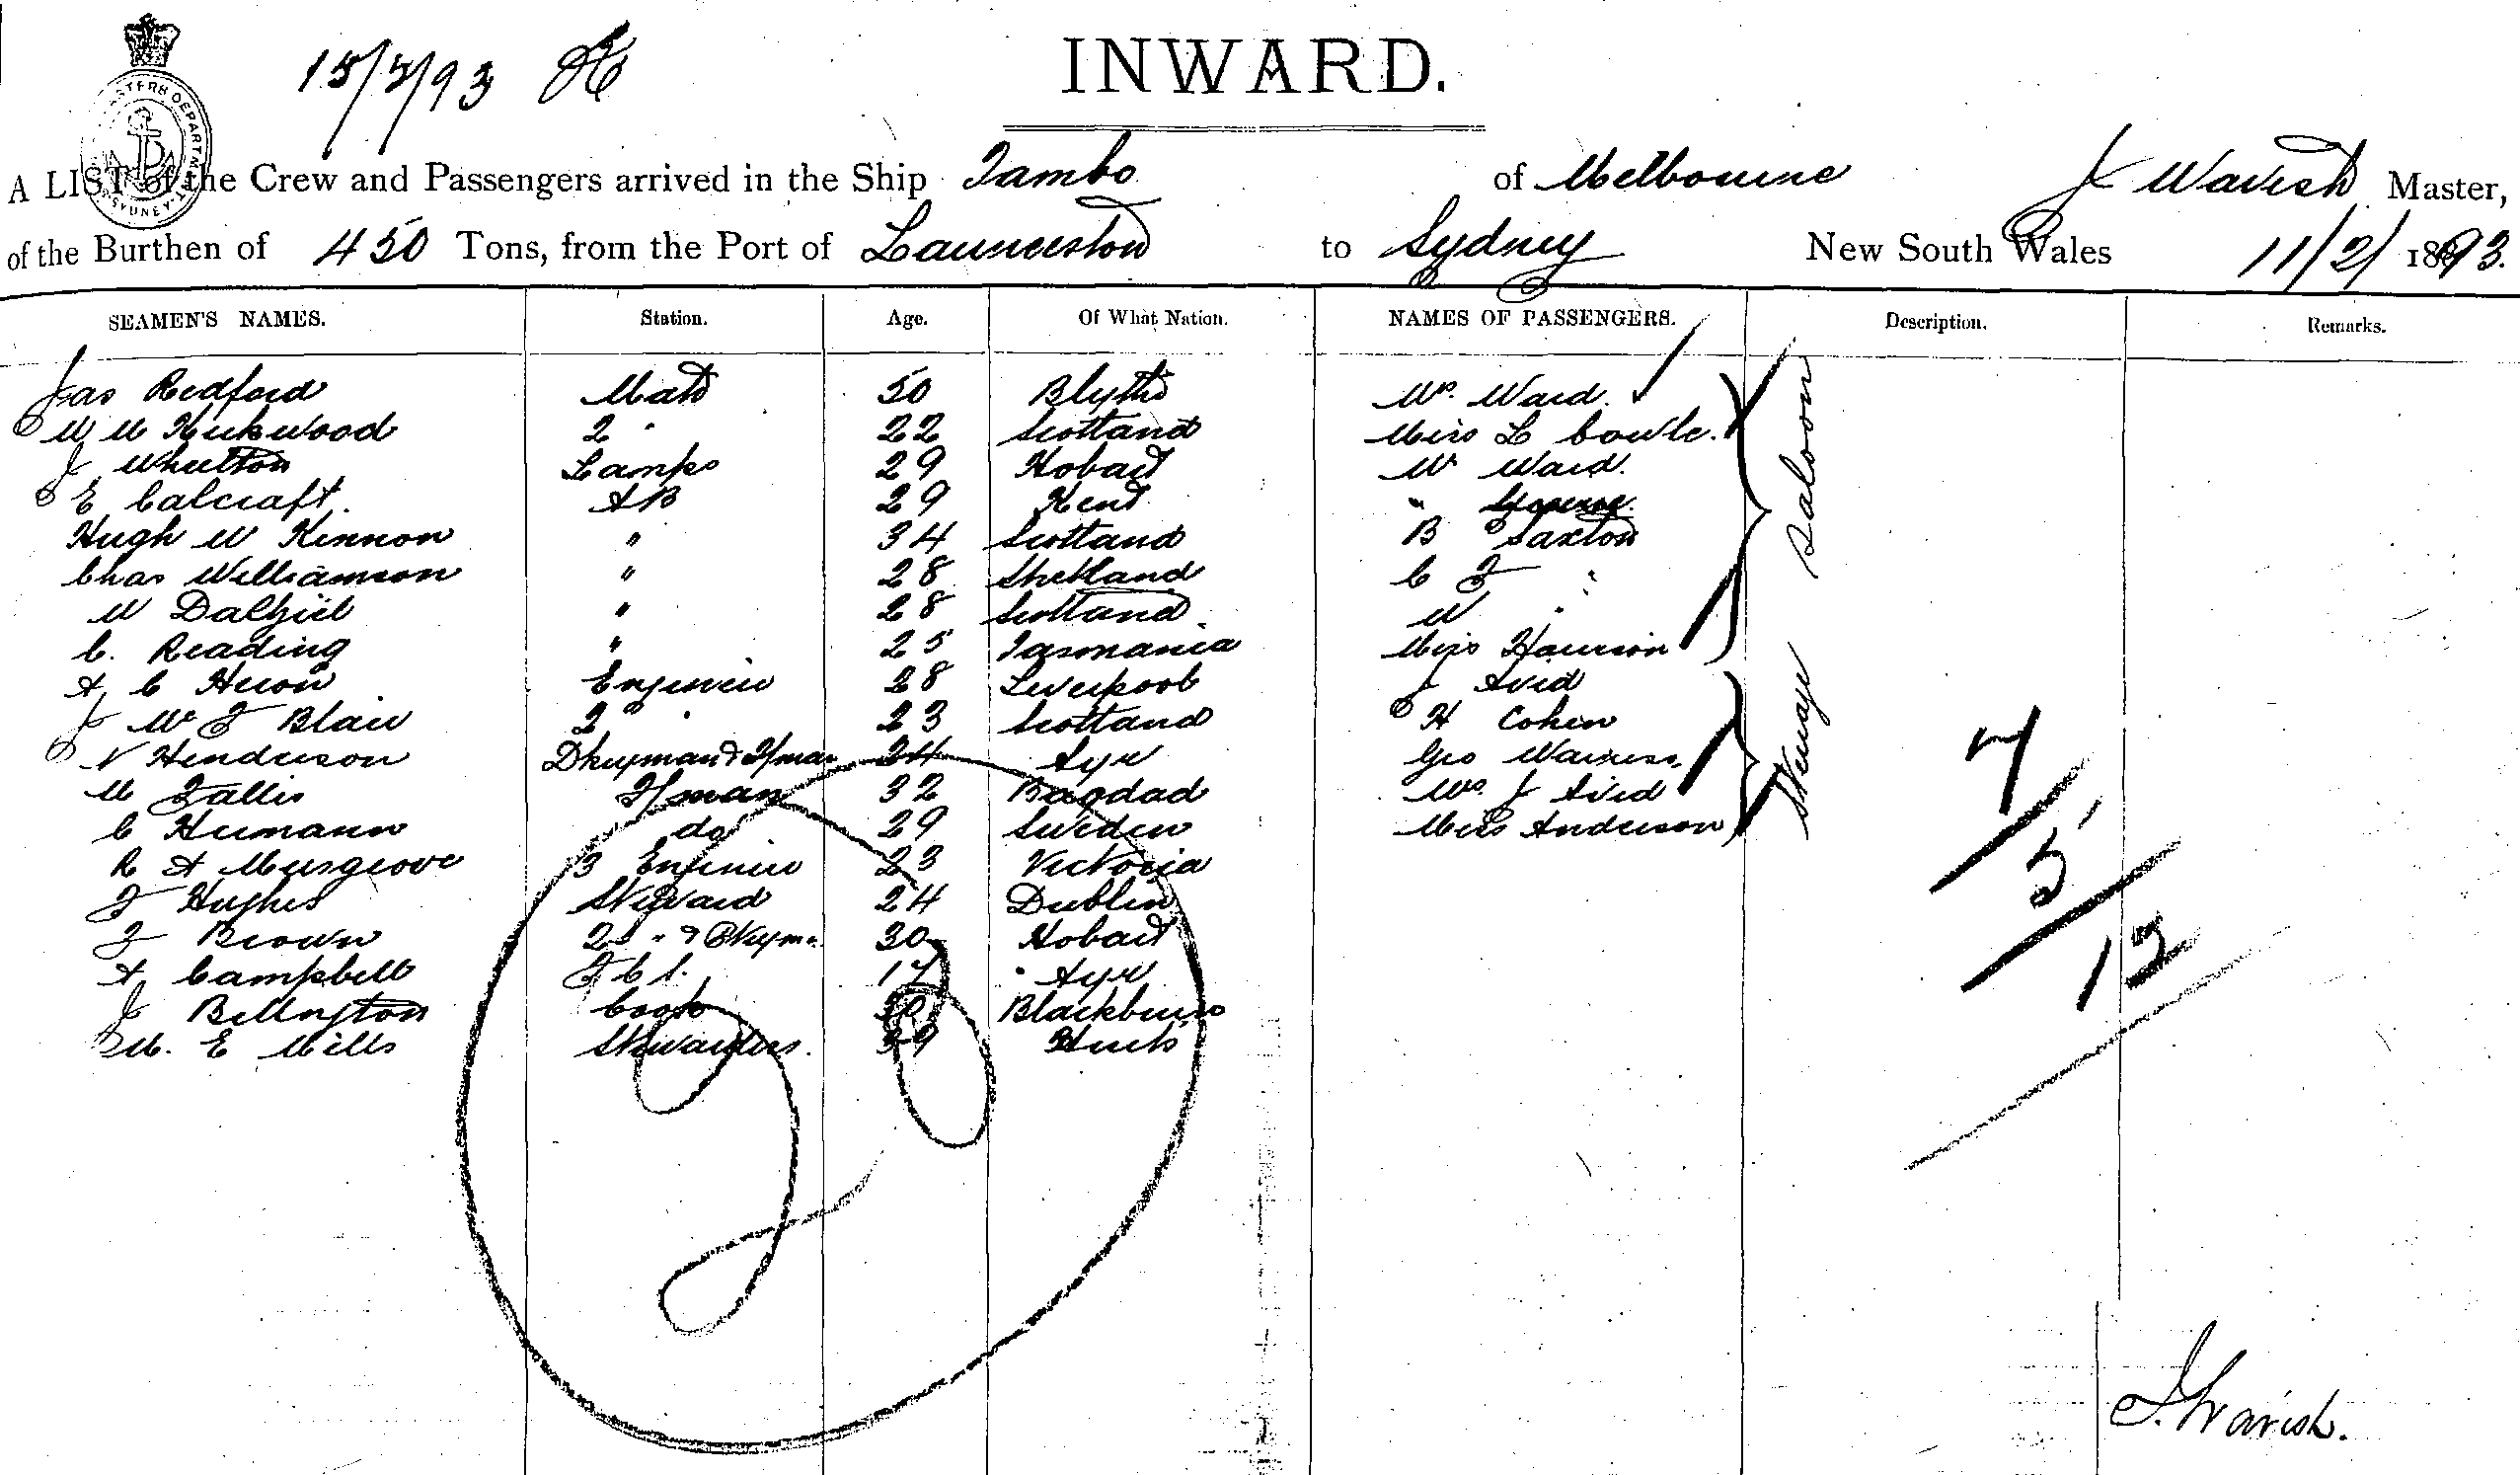 15/2/93
INWARD.
A LIST of the Crew and Passengers arrived in the Ship Tambo of Melbourne J Wavish Master,
of the Burthen of 450 Tons, from the Port of Launceston to Sydney New South Wales 11/2/1893.
SEAMEN'S NAMES. Station. Age. Of What Nation. NAMES OF PASSENGERS. Description. Remarks.
Jas Redford Mate 50 Blyth Mrs. Ward. Saloon
W M Kirkwood 2 " 22 Scotland Miss L Cowle.
J Wheelton Lamps 29 Hobart Mr Ward.
E Calcraft. AB 29 Kent "
Hugh M Kinnon " 34 Scotland B Saxton
Chas Williamson " 28 Shetland C F "
W Dalziel " 28 Scotland W "
C. Reading " 25 Tasmania Miss Harrison
A C Heron Engineer 28 Liverpool J Avid Steerage
J Mc F Blair 2 " 23 Scotland H Cohen
N Henderson Dkeyman & F/man 24 Ayr Geo
M Fallis F/man 32 Bagdad Mrs. J Avid 7
C Hermann do 29 Sweden Miss Anderson 5
R A Musgrove 3 Engineer 23 Victoria
F Hughes Steward 24 Dublin
F Brown 2 " & 30 Hobart 12
A Campbell F C S. 17 Ayr
J Bellington Cook 30 Blackburn
M. E Mills Stewardess. 39 Herts
J. Wavish.